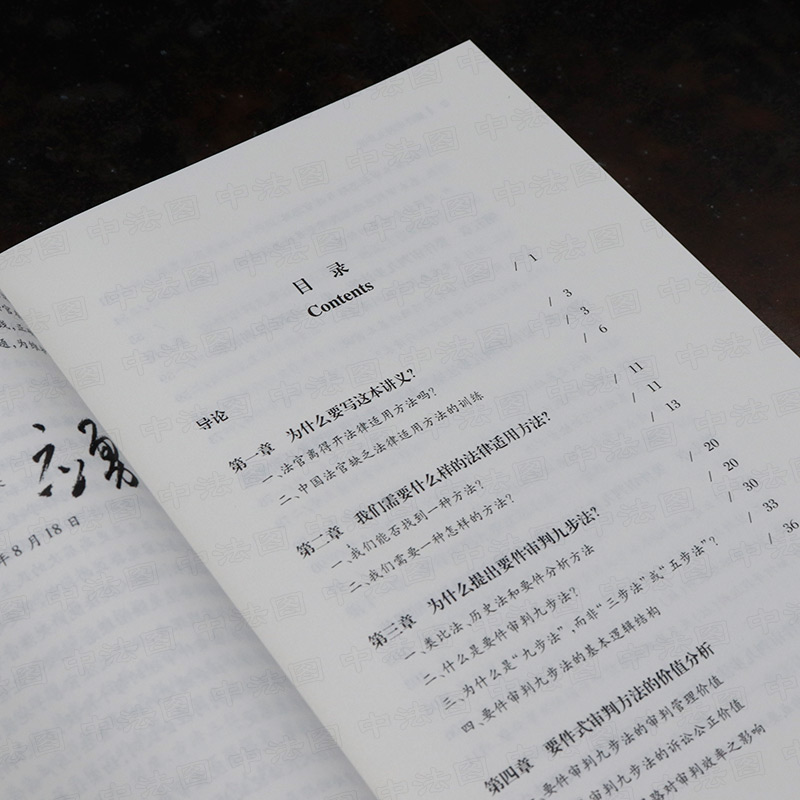 应勇
年8月18日
目 录
Contents
导论 / 1
第一章 为什么要写这本讲义? / 3
一、法官离得开法律适用方法吗? / 3
二、中国法官缺乏法律适用方法的训练 / 6
第二章 我们需要什么样的法律适用方法? / 11
一、我们能否找到一种方法? / 11
二、我们需要一种怎样的方法? / 13
第三章 为什么提出要件审判九步法? / 20
一、类比法、历史法和要件分析方法 / 20
二、什么是要件审判九步法? / 30
三、为什么是“九步法”,而非“三步法”或“五步法”? / 33
四、要件审判九步法的基本逻辑结构 / 36
第四章 要件式审判方法的价值分析
要件审判九步法的审判管理价值
审判九步法的诉讼公正价值
路对审判效率之影响
中法图